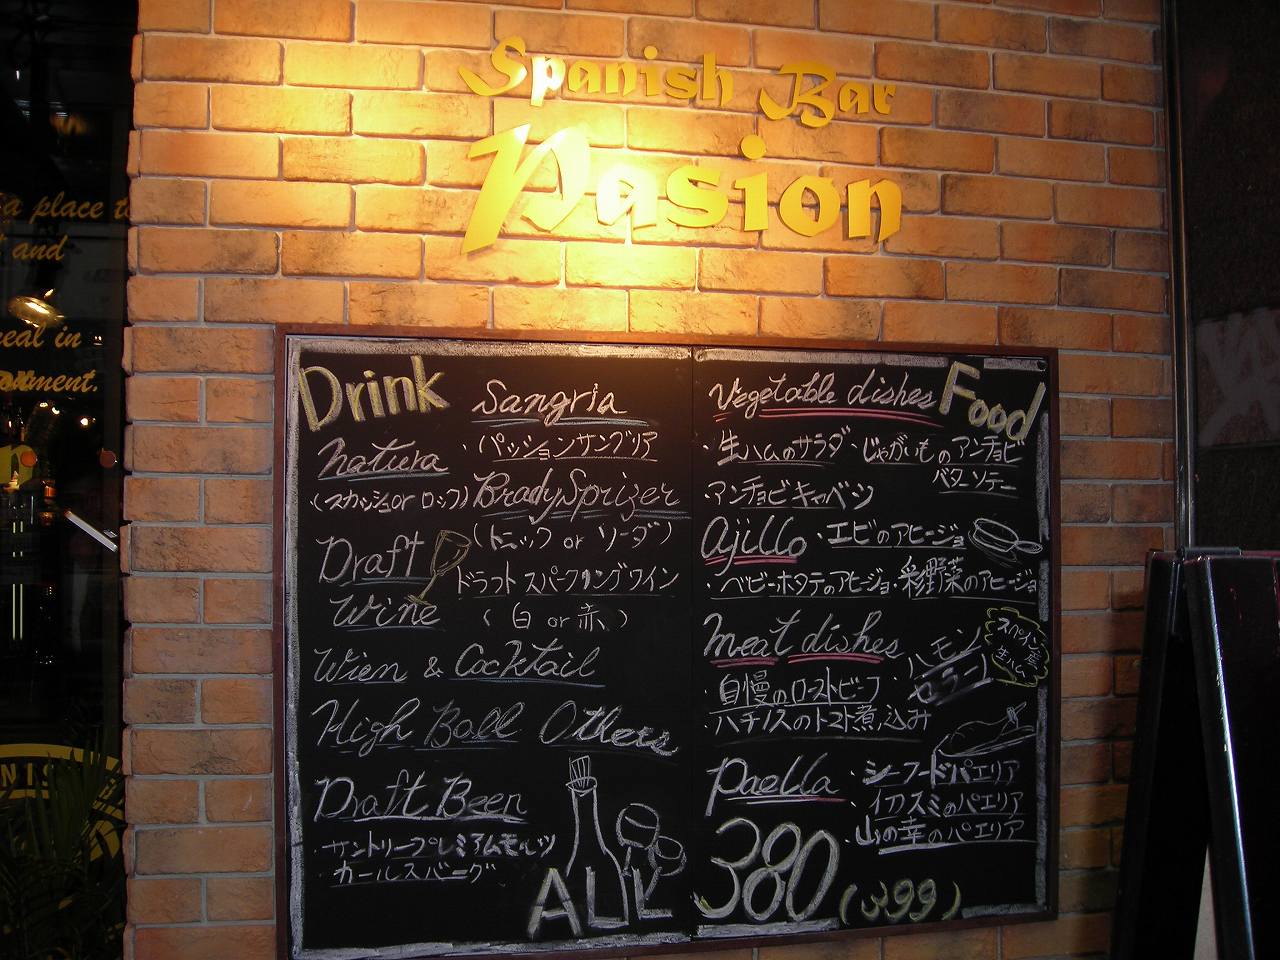 Spanish Bar
Pasion
a place to
and
meal in
Drink
Sangria
・パッションサングリア
natura
(スカッシュ or ロック)
Brady Sprizer
(トニック or ソーダ)
Draft
Wine
ドラフトスパークリングワイン
(白 or 赤)
Wien & Cocktail
High Ball Others
Draft Beer
・サントリープレミアムモルツ
カールスバーグ
Food
Vegetable dishes
・生ハムのサラダ ・じゃがいものアンチョビ
バターソテー
・アンチョビキャベツ
ajillo ・エビのアヒージョ
・ベビーホタテのアヒージョ ・彩野菜のアヒージョ
meat dishes
・ハモン
セラーノ
スペイン産
生ハム
・自慢のローストビーフ
・ハチノスのトマト煮込み
paella ・シーフードパエリア
・イカスミのパエリア
・山の幸のパエリア
ALL 380 (399)
NIS